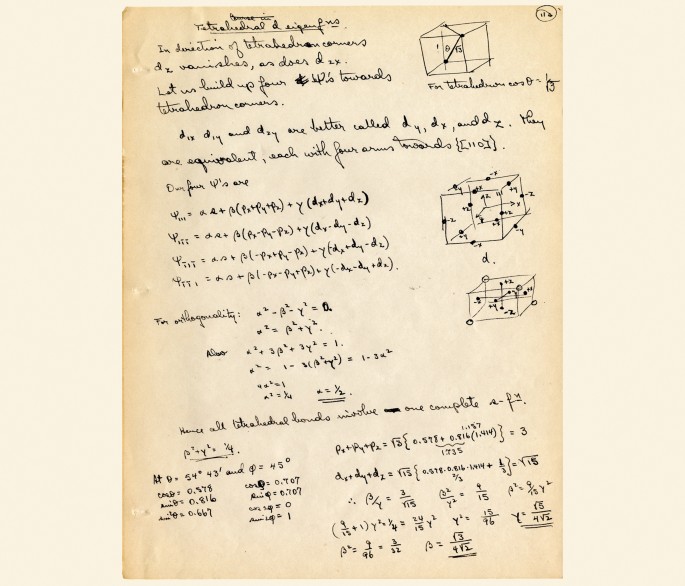 Tetrahedral d eigenfns.
112
In direction of tetrahedron corners
d_z vanishes, as does d_zx.
Let us build up four ψ's towards
tetrahedron corners.
For tetrahedron cos θ = 1/√3
and d_xy are better called d_y, d_x, and d_z. They
are equivalent, each with four arms towards {[110]}.
Our four ψ's are
ψ_111 = αs + β(p_x+p_y+p_z) + γ(d_x+d_y+d_z)
= αs + β(p_x-p_y-p_z) + γ(d_x-d_y-d_z)
= αs + β(-p_x+p_y-p_z) + γ(
= αs + β(-p_x-p_y+p_z) + γ(-d_x-d_y+d_z).
d.
For orthogonality: α² - β² - γ² = 0.
α² = β² + γ².
Also α² + 3β² + 3γ² = 1.
α² = 1 - 3(β²+γ²) = 1 - 3α²
4α² = 1
α² = 1/4 α = 1/2.
Hence all tetrahedral bonds involve one complete s-fn.
β² + γ² = 1/4.
At θ = 54° 43' and φ = 45°
cos θ = 0.578 cos φ = 0.707
sin θ = 0.816 sin φ = 0.707
sin²θ = 0.667 cos 2φ = 0
sin 2φ = 1
p_x+p_y+p_z = √3 {0.578 + 0.816(1.414)} = 3
1.157
1.735
d_x+d_y+d_z = √15 {0.578·0.816·1.414 + 1/3} = √15
2/3
∴ β/γ = 3/√15 β²/γ² = 9/15 β² = 9/15 γ²
(9/15 + 1) γ² = 1/4 = 24/15 γ² γ² = 15/96 γ = √5/4√2
β² = 9/96 = 3/32 β = √3/4√2